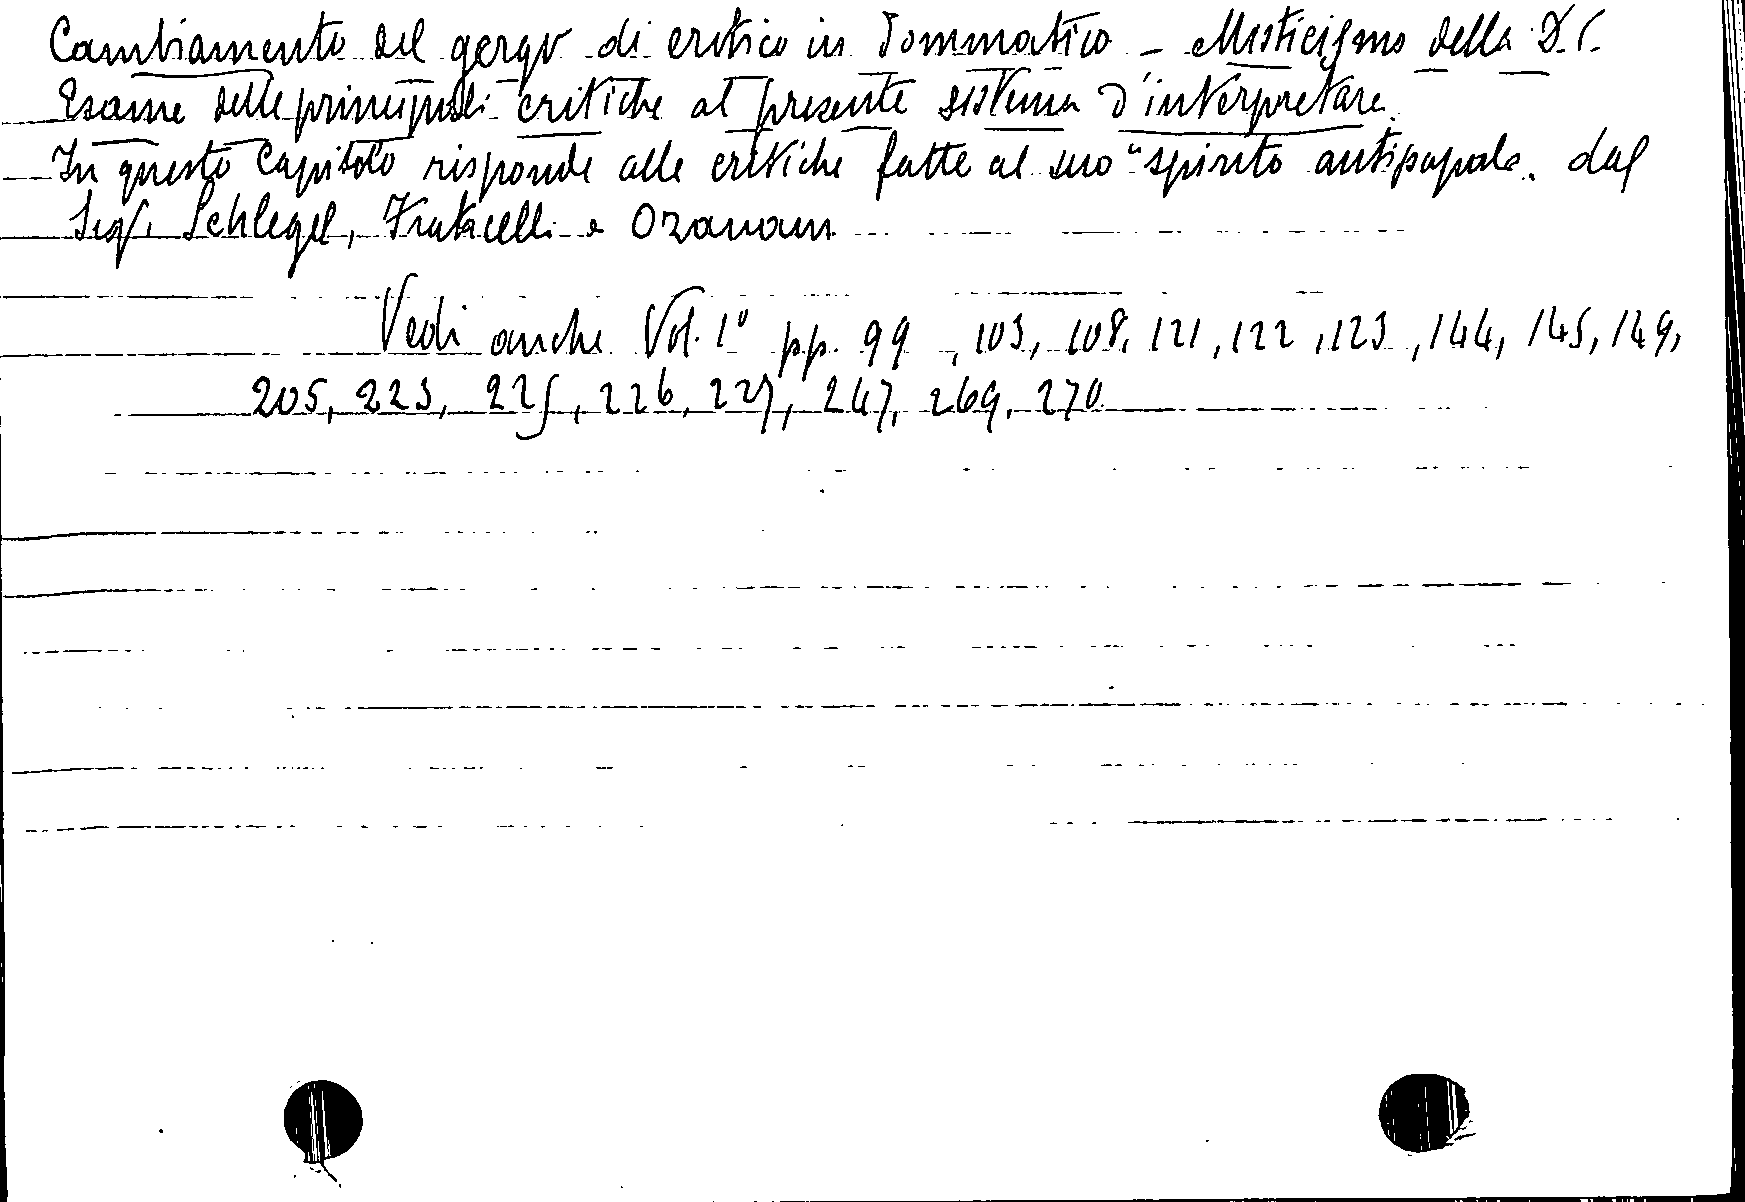 Cambiamento del gergo di critico in Dommatico - Misticismo della D.C.
Esame delle principali critiche al presente sistema d'interpretare.
In questo Capitolo risponde alle critiche fatte al suo "spirito antipapale" dal
Sigg. Schlegel, Fraticelli e Ozanam
Vedi anche Vol. 1º pp. 99, 103, 108, 121, 122, 123, 144, 145, 149,
205, 223, 225, 226, 227, 247, 269, 270